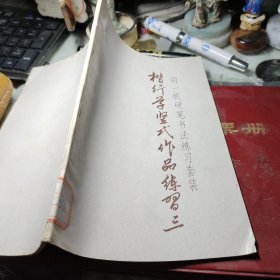 第一级硬笔书法练习套装
楷行草竖式作品练习三
册